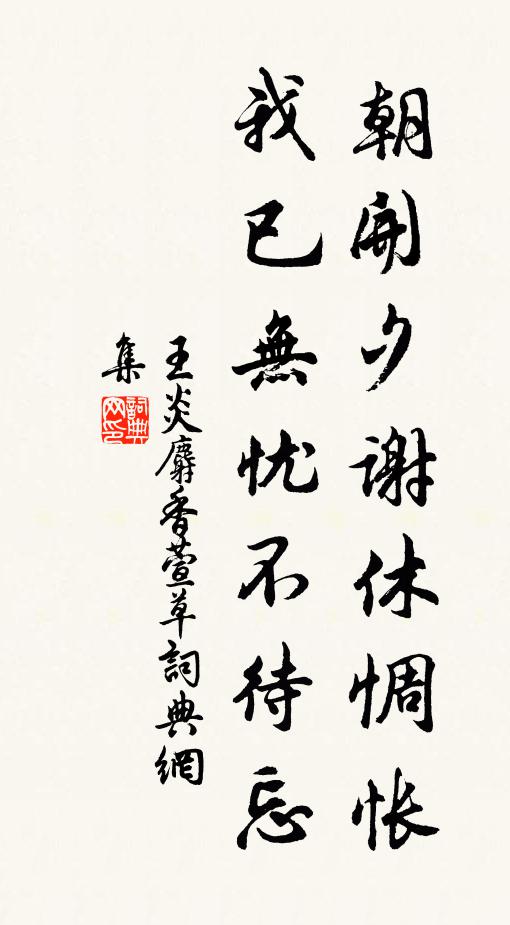 朝開夕謝休惆怅
我已無忧不待忘
王炎麝香萱草詞典網
集
詞典
网印